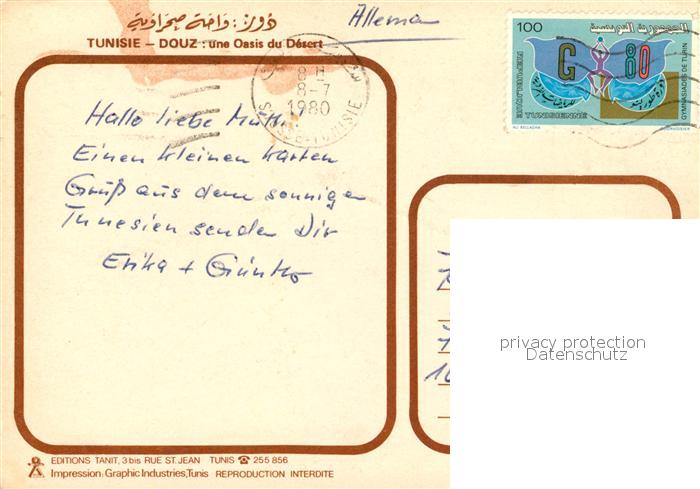 دوز: واحة صحراوية
TUNISIE – DOUZ: une Oasis du Désert
Alleman
100
الجمهورية التونسية
G 80
REPUBLIQUE
TUNISIENNE
GYMNASIADES DE TURIN
8-7
1980
TUNISIE
Hallo liebe Mutti
Einen kleinen Karten
Gruß aus dem sonnigen
Tunesien senden Dir
Erika + Günter
privacy protection
Datenschutz
EDITIONS TANIT, 3 bis RUE ST. JEAN TUNIS ☎ 255 856
Impression: Graphic Industries, Tunis REPRODUCTION INTERDITE